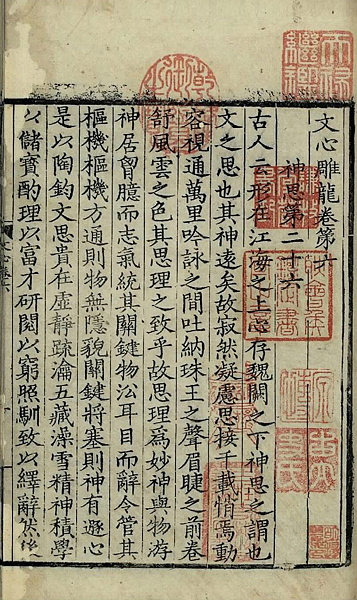 文心雕龍卷第六
神思第二十六
古人云形在江海之上心存魏闕之下神思之謂也
文之思也其神遠矣故寂然凝慮思接千載悄焉動
容視通萬里吟詠之間吐納珠玉之聲眉睫之前卷
舒風雲之色其思理之致乎故思理爲妙神與物游
神居胷臆而志氣統其關鍵物沿耳目而辭令管其
樞機樞機方通則物無隱貌關鍵將塞則神有遯心
是以陶鈞文思貴在虛靜疏瀹五藏澡雪精神積學
以儲寶酌理以富才研閱以窮照馴致以繹辭然後